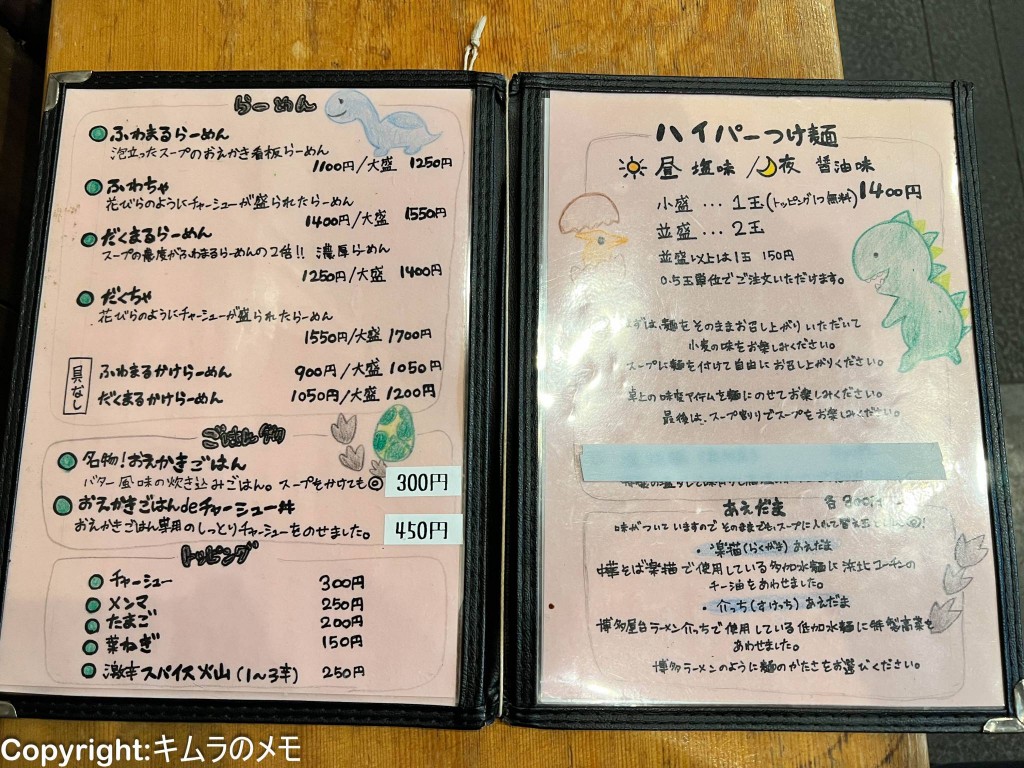 らーめん
ふわまるらーめん
泡立ったスープのおえかき看板らーめん
1100円/大盛 1250円
ふわちゃ
花びらのようにチャーシューが盛られたらーめん
1400円/大盛 1550円
だくまるらーめん
スープの濃度がふわまるらーめんの2倍!! 濃厚らーめん
1250円/大盛 1400円
だくちゃ
花びらのようにチャーシューが盛られたらーめん
1550円/大盛 1700円
具なし
ふわまるかけらーめん 900円/大盛 1050円
だくまるかけらーめん 1050円/大盛 1200円
ごはん物
名物!おえかきごはん
バター風味の炊き込みごはん。スープをかけても◎ 300円
おえかきごはんdeチャーシュー丼
おえかきごはん専用のしっとりチャーシューをのせました。 450円
トッピング
チャーシュー 300円
メンマ 250円
たまご 200円
葉ねぎ 150円
激辛スパイス火山(1〜3辛) 250円
ハイパーつけ麺
昼 塩味 /夜 醤油味
小盛 … 1玉(トッピング1つ無料) 1400円
並盛 … 2玉
並盛以上は1玉 150円
0.5玉単位でご注文いただけます。
まずは、麺をそのままお召し上がりいただいて
小麦の味をお楽しみください。
スープに麺を付けて自由にお召し上がりください。
卓上の味変アイテムを麺にのせてお楽しみください。
最後は、スープ割りでスープをお楽しみください。
あえだま 各
味がついていますのでそのままでも、スープに入れて替え玉
・楽猫(らくがき)あえだま
中華そば楽猫で使用している多加水麺に浜北コーチンの
チー油をあわせました。
・介っち(すけっち)あえだま
博多屋台ラーメン介っちで使用している低加水麺に特製高菜を
あわせました。
博多ラーメンのように麺のかたさをお選びください。
Copyright:キムラのメモ